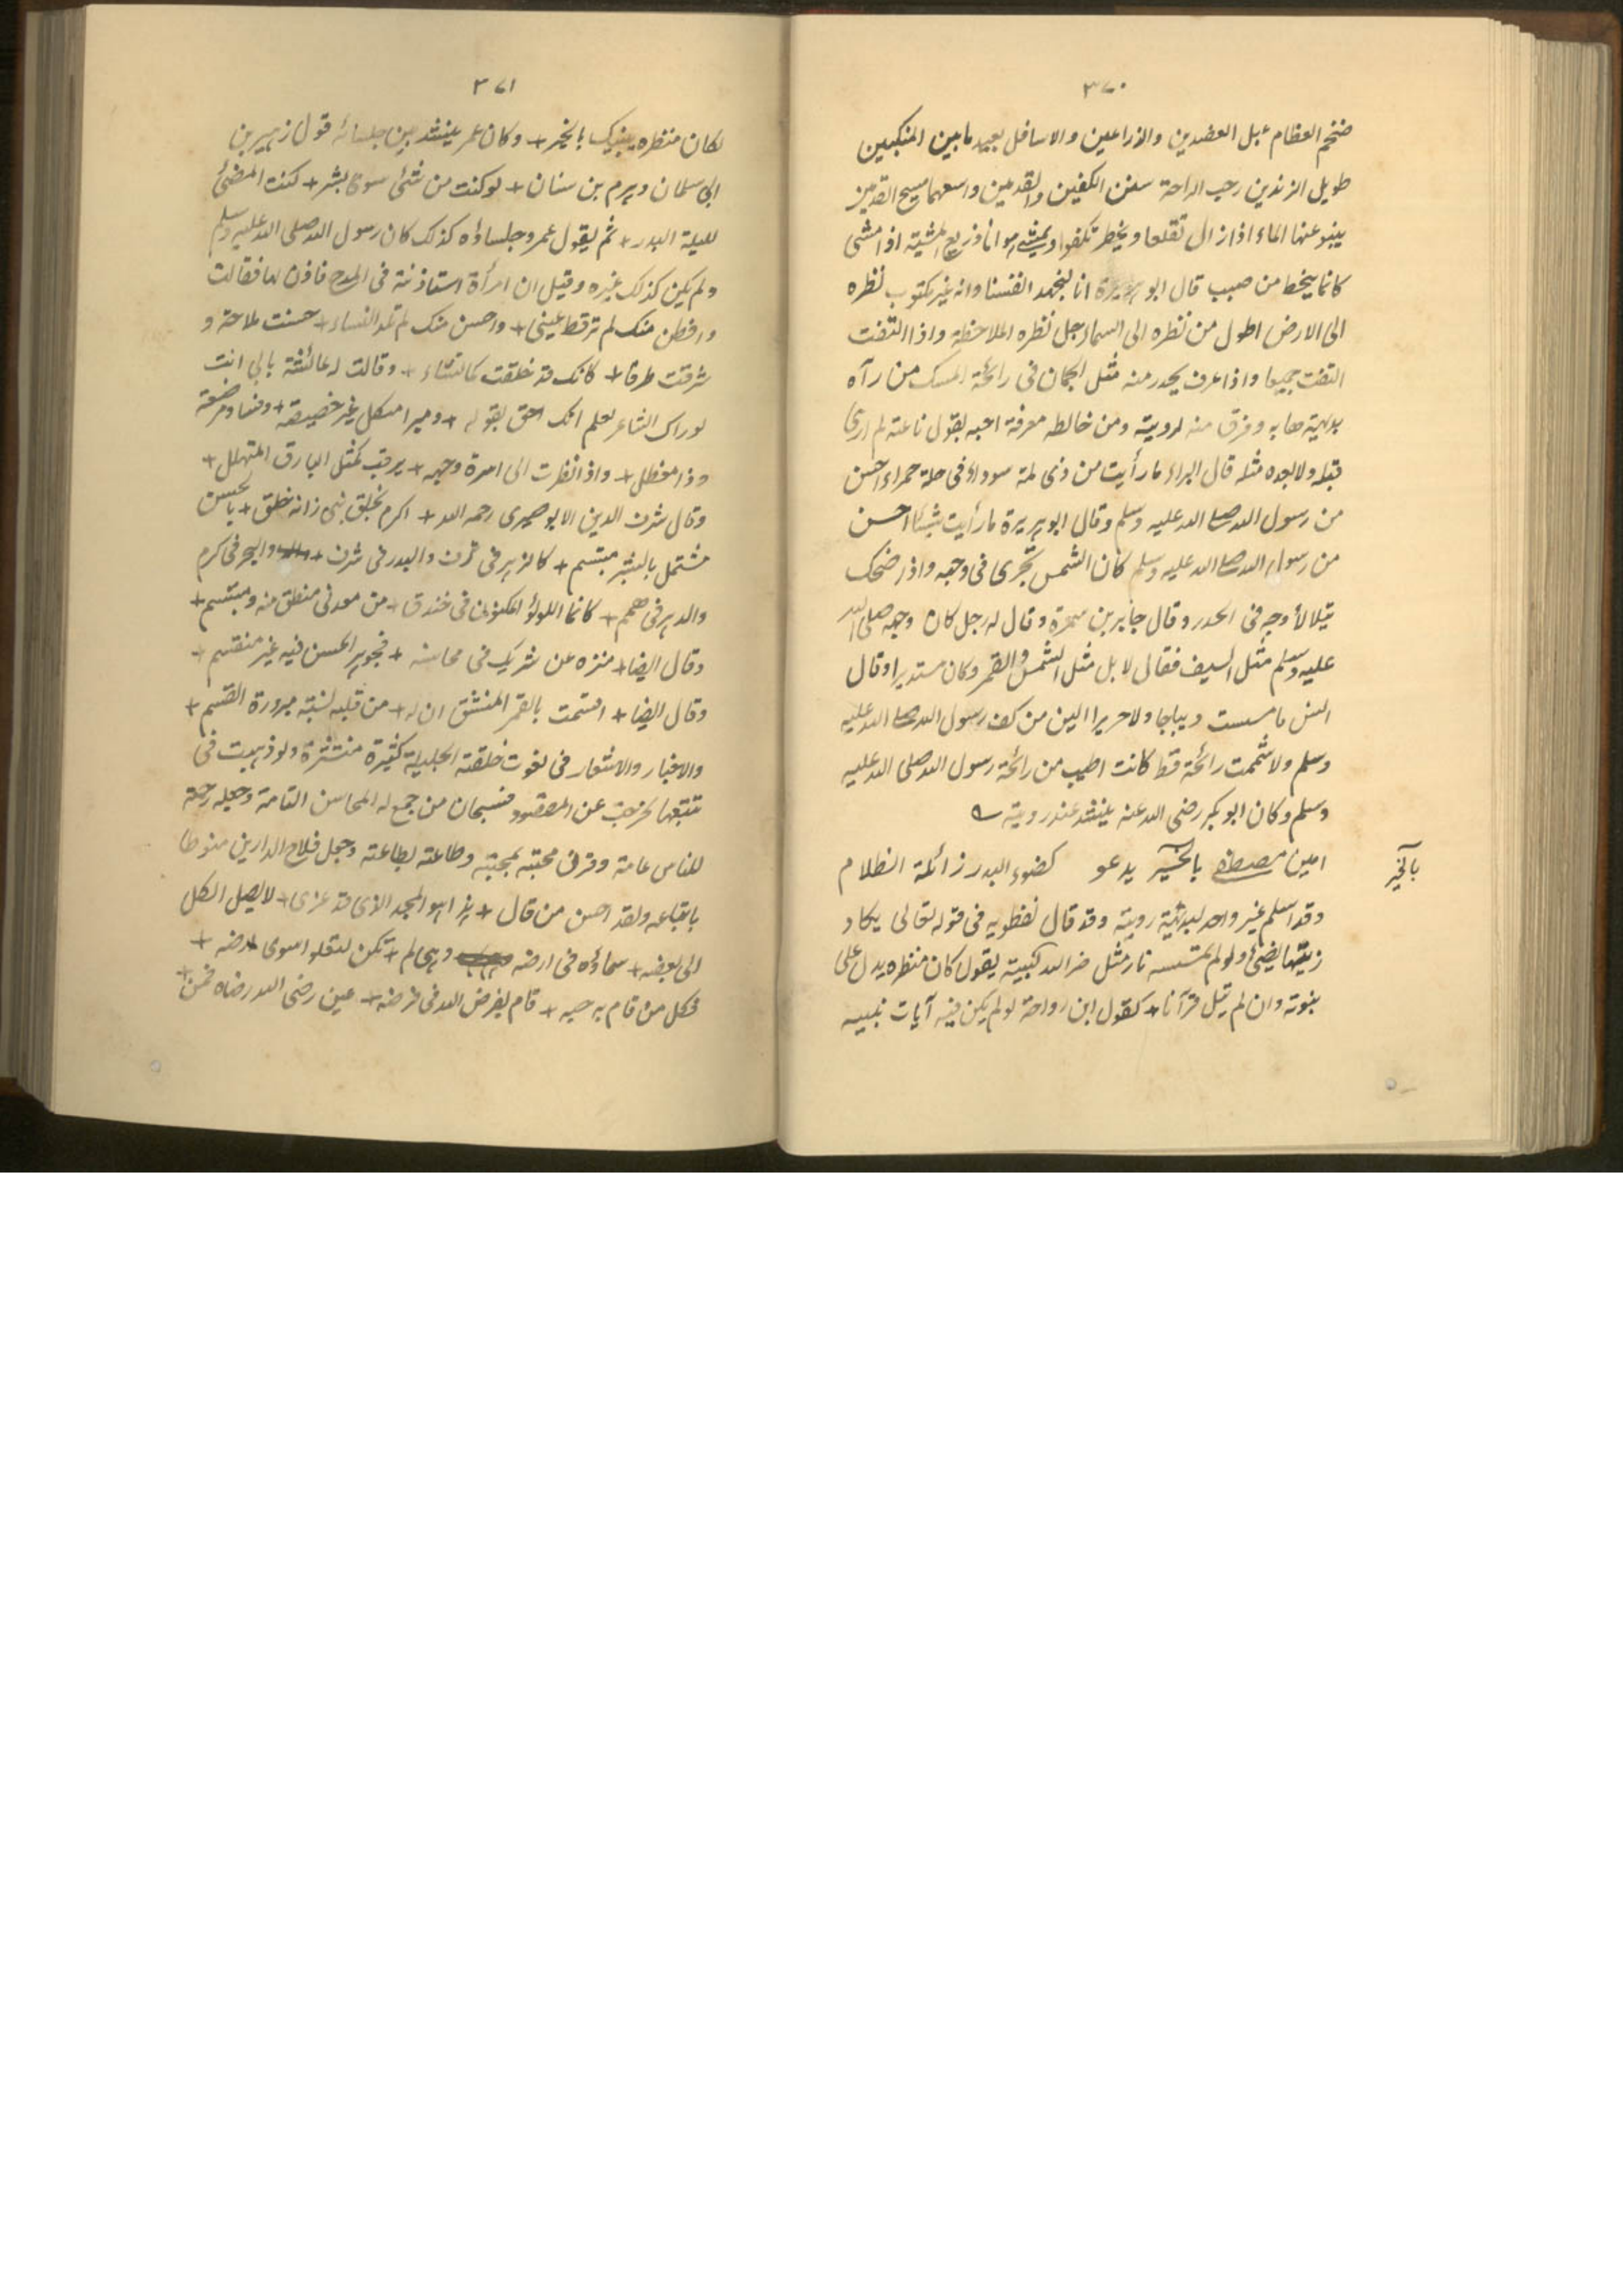 ٣٧٠
ضخم العظام عبل العضدين والذراعين والاسافل بعيد ما بين المنكبين
طويل الزندين رحب الراحة سثن الكفين والقدمين واسعهما مسيح القدمين
ينبو عنهما الماء اذا زال تقلعا ويخطو تكفوا ويمشي هوانا ذريع المشية اذا مشى
كانما ينحط من صبب قال ابو هريرة انا لنجهد انفسنا وانه غير مكتوب نظره
الى الارض اطول من نظره الى السماء جل نظره الملاحظة واذا التفت
التفت جميعا واذا عرف يحدر منه مثل الجمان في رائحة المسك من رآه
بديهة هابه وفرق منه لرويته ومن خالطه معرفة احبه يقول ناعته لم ارى
قبله ولا بعده مثله قال البراء ما رأيت من ذي لمة سوداء في حلة حمراء احسن
من رسول الله صلى الله عليه وسلم وقال ابو هريرة ما رأيت شيئا احسن
من رسول الله صلى الله عليه وسلم كان الشمس تجري في وجهه واذا ضحك
يتلالأ وجه في الجدر وقال جابر بن سمرة وقال له رجل كان وجهه صلى الله
عليه وسلم مثل السيف فقال لا بل مثل الشمس والقمر وكان مستديرا وقال
انس ما مسست ديباجا ولا حريرا الين من كف رسول الله صلى الله عليه
وسلم ولا شممت رائحة قط كانت اطيب من رائحة رسول الله صلى الله عليه
وسلم وكان ابو بكر رضى الله عنه ينشد عند رويته
امين مصطفى بالخير يدعو كضوء البدر زائلة الظلام
بالخير
وقد اسلم غير واحد لبديهية رويته وقد قال نفطويه في قوله تعالى يكاد
زيتها يضيئ ولو لم تمسسه نار مثل ضرالله لنبيه يقول كان منظره يدل على
نبوته وان لم يتل قرآنا + كقول ابن رواحة لو لم يكن فيه آيات مبينه
٣٧١
لكان منظره ينبيك بالخبر + وكان عمر ينشد بين جلسائه قول زهير بن
ابي سلمان وهرم بن سنان + لو كنت من شئ سوى بشر + كنت المضئ
لليلة البدر + ثم يقول عمر وجلساؤه كذلك كان رسول الله صلى الله عليه وسلم
ولم يكن كذلك غيره وقيل ان امرأة استاذنته في المدح فاذن لها فقالت
وافطن منك لم ترقط عيني + واحسن منك لم تلد النساء + حسنت ملاحة و
شرفت طرفا + كانك قد خلقت كما تشاء + وقالت له عائشة بابي انت
لو راك الشاعر لعلم انك احق بقوله + ومبرا من كل غير خصيصة + وفساد مرضعة
وذا مغطل + واذا نظرت الى اسرة وجهه + برقت كمثل البارق المتهلل +
وقال شرف الدين الابوصيرى رحمه الله + اكرم بخلق نبى زانه خلق + بالحسن
مشتمل بالبشر مبتسم + كالزهر في ترف والبدر في شرف + والبحر في كرم
والدهر في همم + كانما اللولؤ المكنون في خندق + من معدني منطق منه ومبتسم +
وقال ايضا + منزه عن شريك في محاسنه + فجوهر الحسن فيه غير منقسم +
وقال ايضا + اقسمت بالقمر المنشق ان له + من قلبه نسبة مبرورة القسم +
والاخبار والاشعار في نعوت خلقته الجليلة كثيرة منتشرة ولو ذهبت في
تتبعها لخرجت عن المقصود فسبحان من جمع له المحاسن التامة وجعله رحمة
للناس عامة وقرن محبته بمحبته وطاعته بطاعته وجعل فلاح الدارين منوطا
باتباعه ولقد احسن من قال + هذا هو المجد الذي قد عزى + لا يصل الكل
الى بعضه + سماؤه في ارضه وهى لم + تكن لتعلو اسوى ارضه +
فكل من قام به حبه + قام بفرض الله في فرضه + عين رضى الله رضاه فمن +